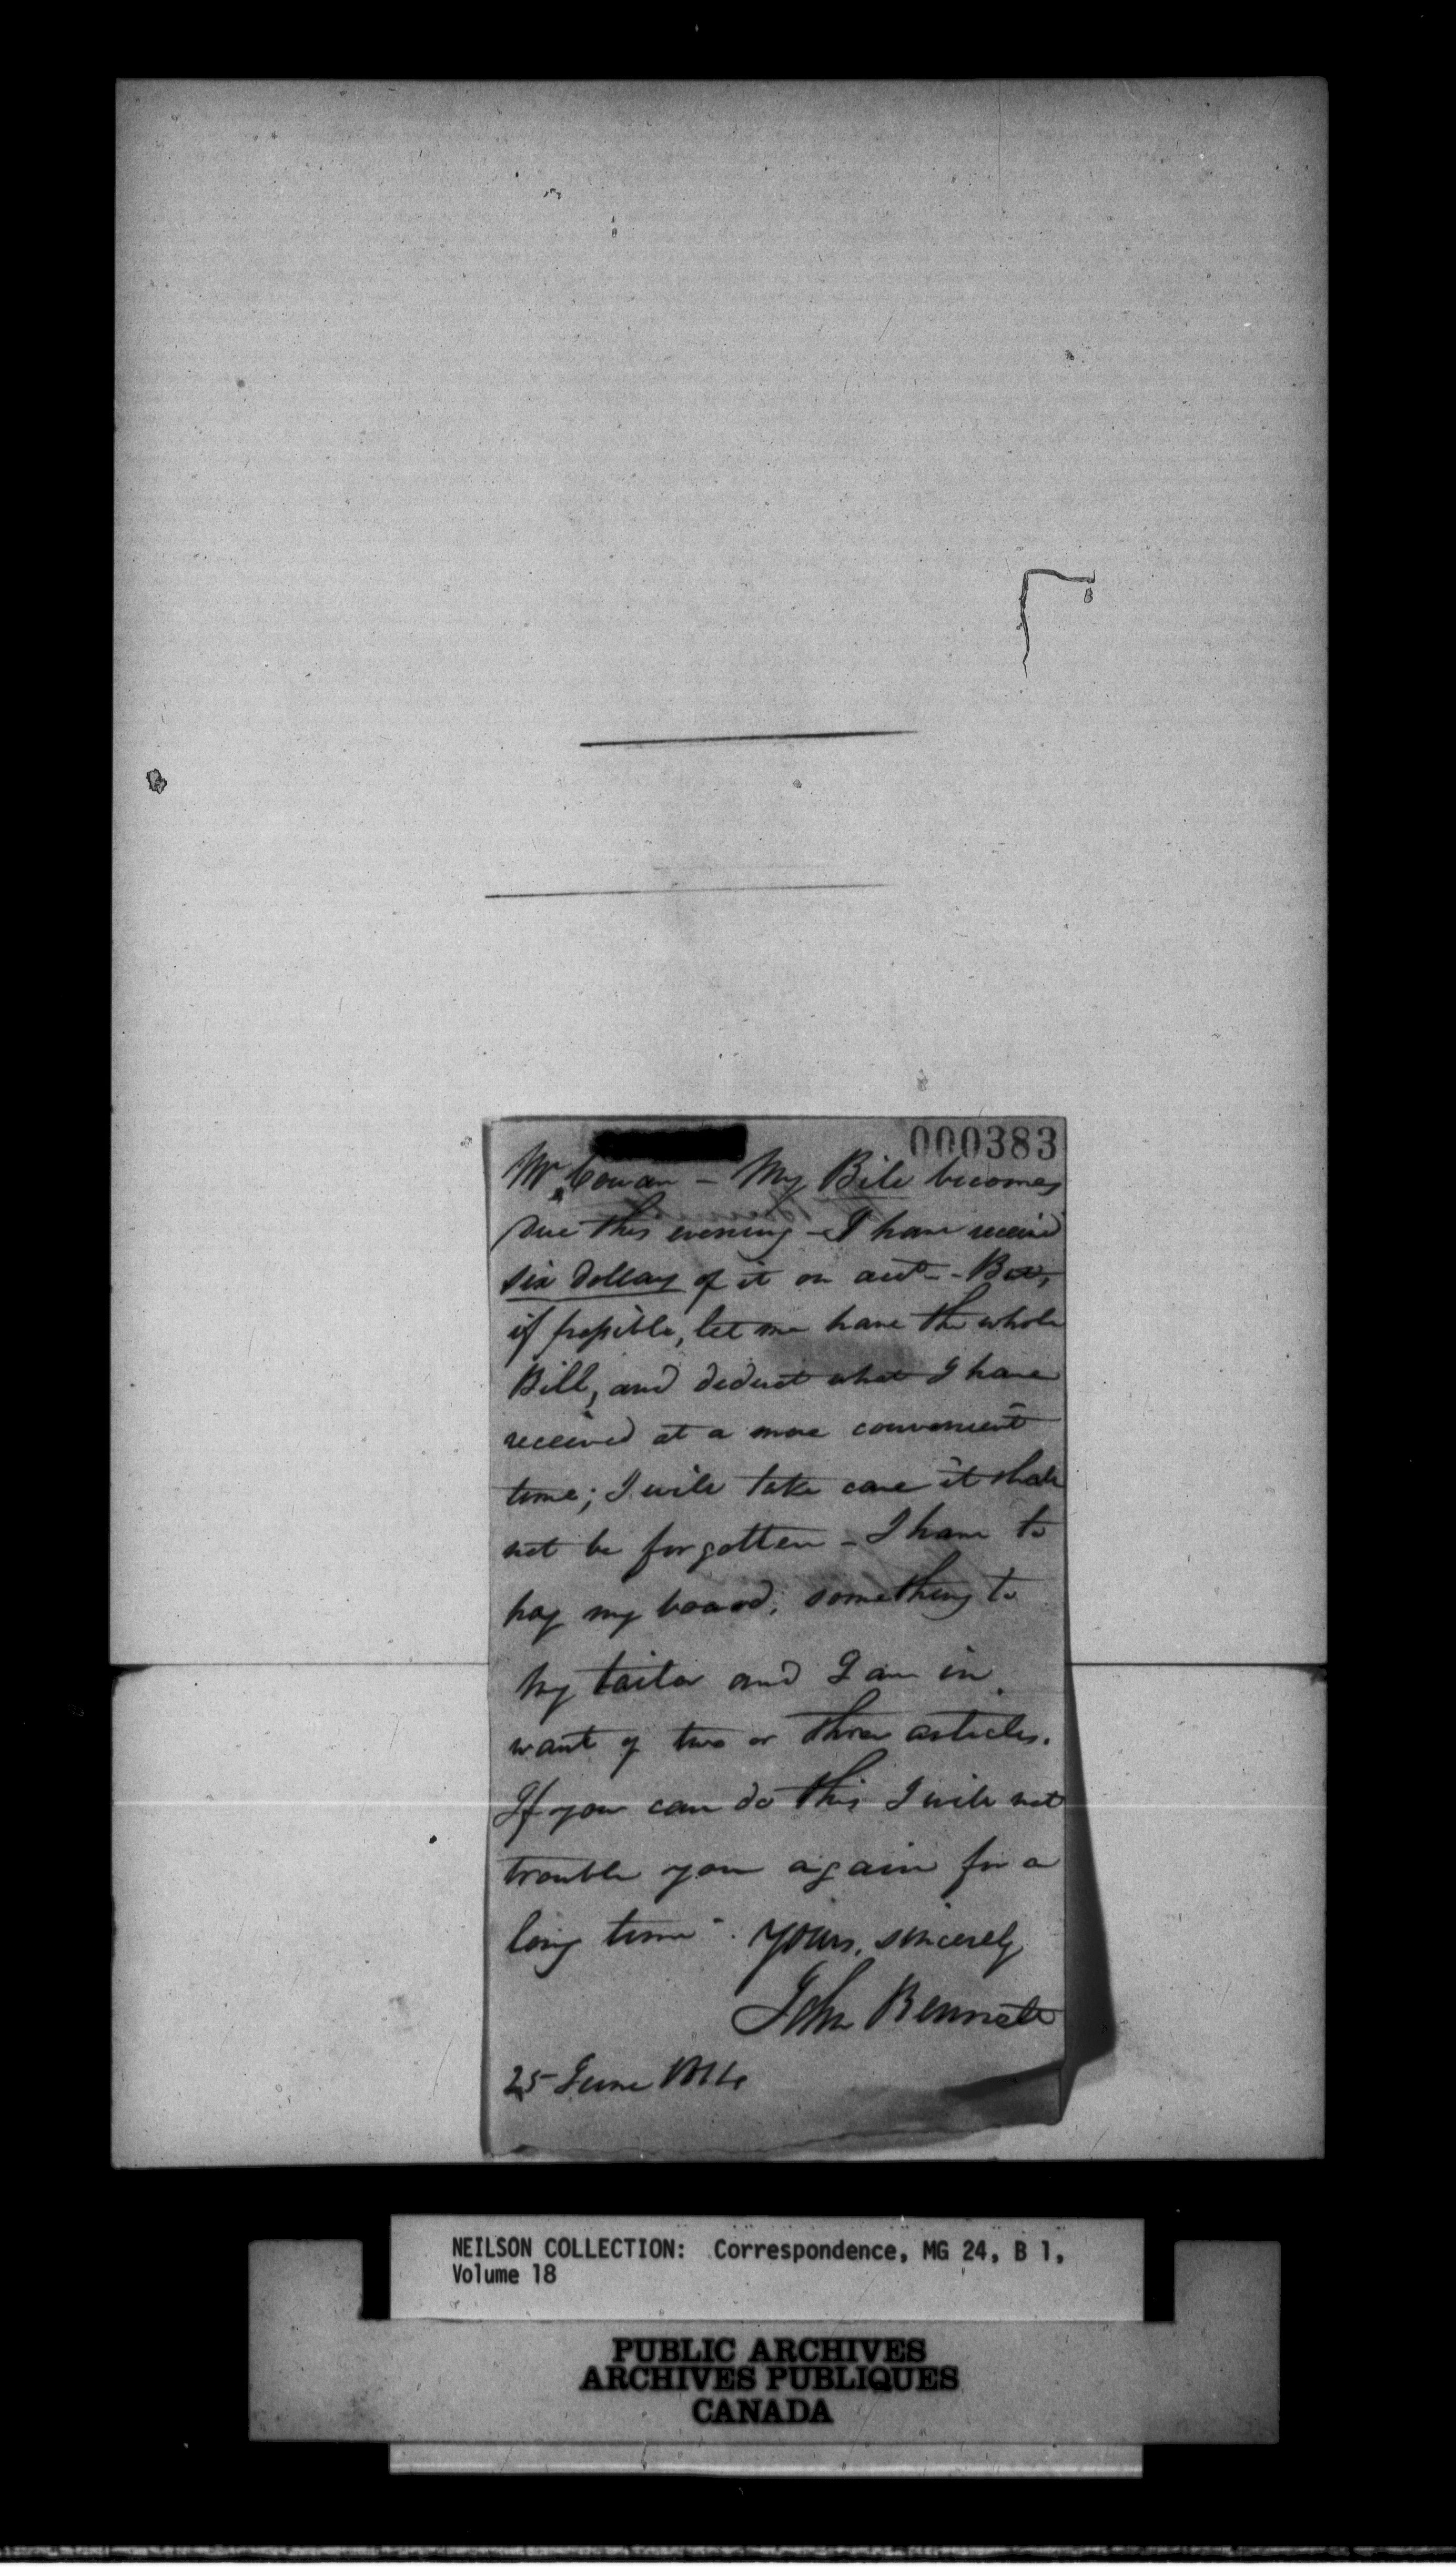 000383
Mr. Cowan - My Bill becomes
due this evening - I have received
six dollars of it on acct. - But,
if possible, let me have the whole
Bill, and deduct what I have
received at a more convenient
time; I will take care it shall
not be forgotten - I have to
pay my board, something to
my tailor and I am in
want of two or three articles.
If you can do this I will not
trouble you again for a
long time - Yours, sincerely
John Bennett
25 June
NEILSON COLLECTION: Correspondence, MG 24, B 1,
Volume 18
PUBLIC ARCHIVES
ARCHIVES PUBLIQUES
CANADA